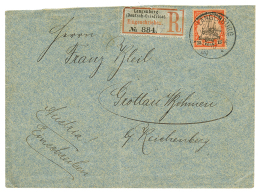 Langenburg
(Deutsch-Ostafrika).
Eingeschrieben.
№ 884.
LANGENBURG
Herrn
Franz Pfeil
Grottau Böhmen
b/ Reichenberg
Austria
Einschreiben